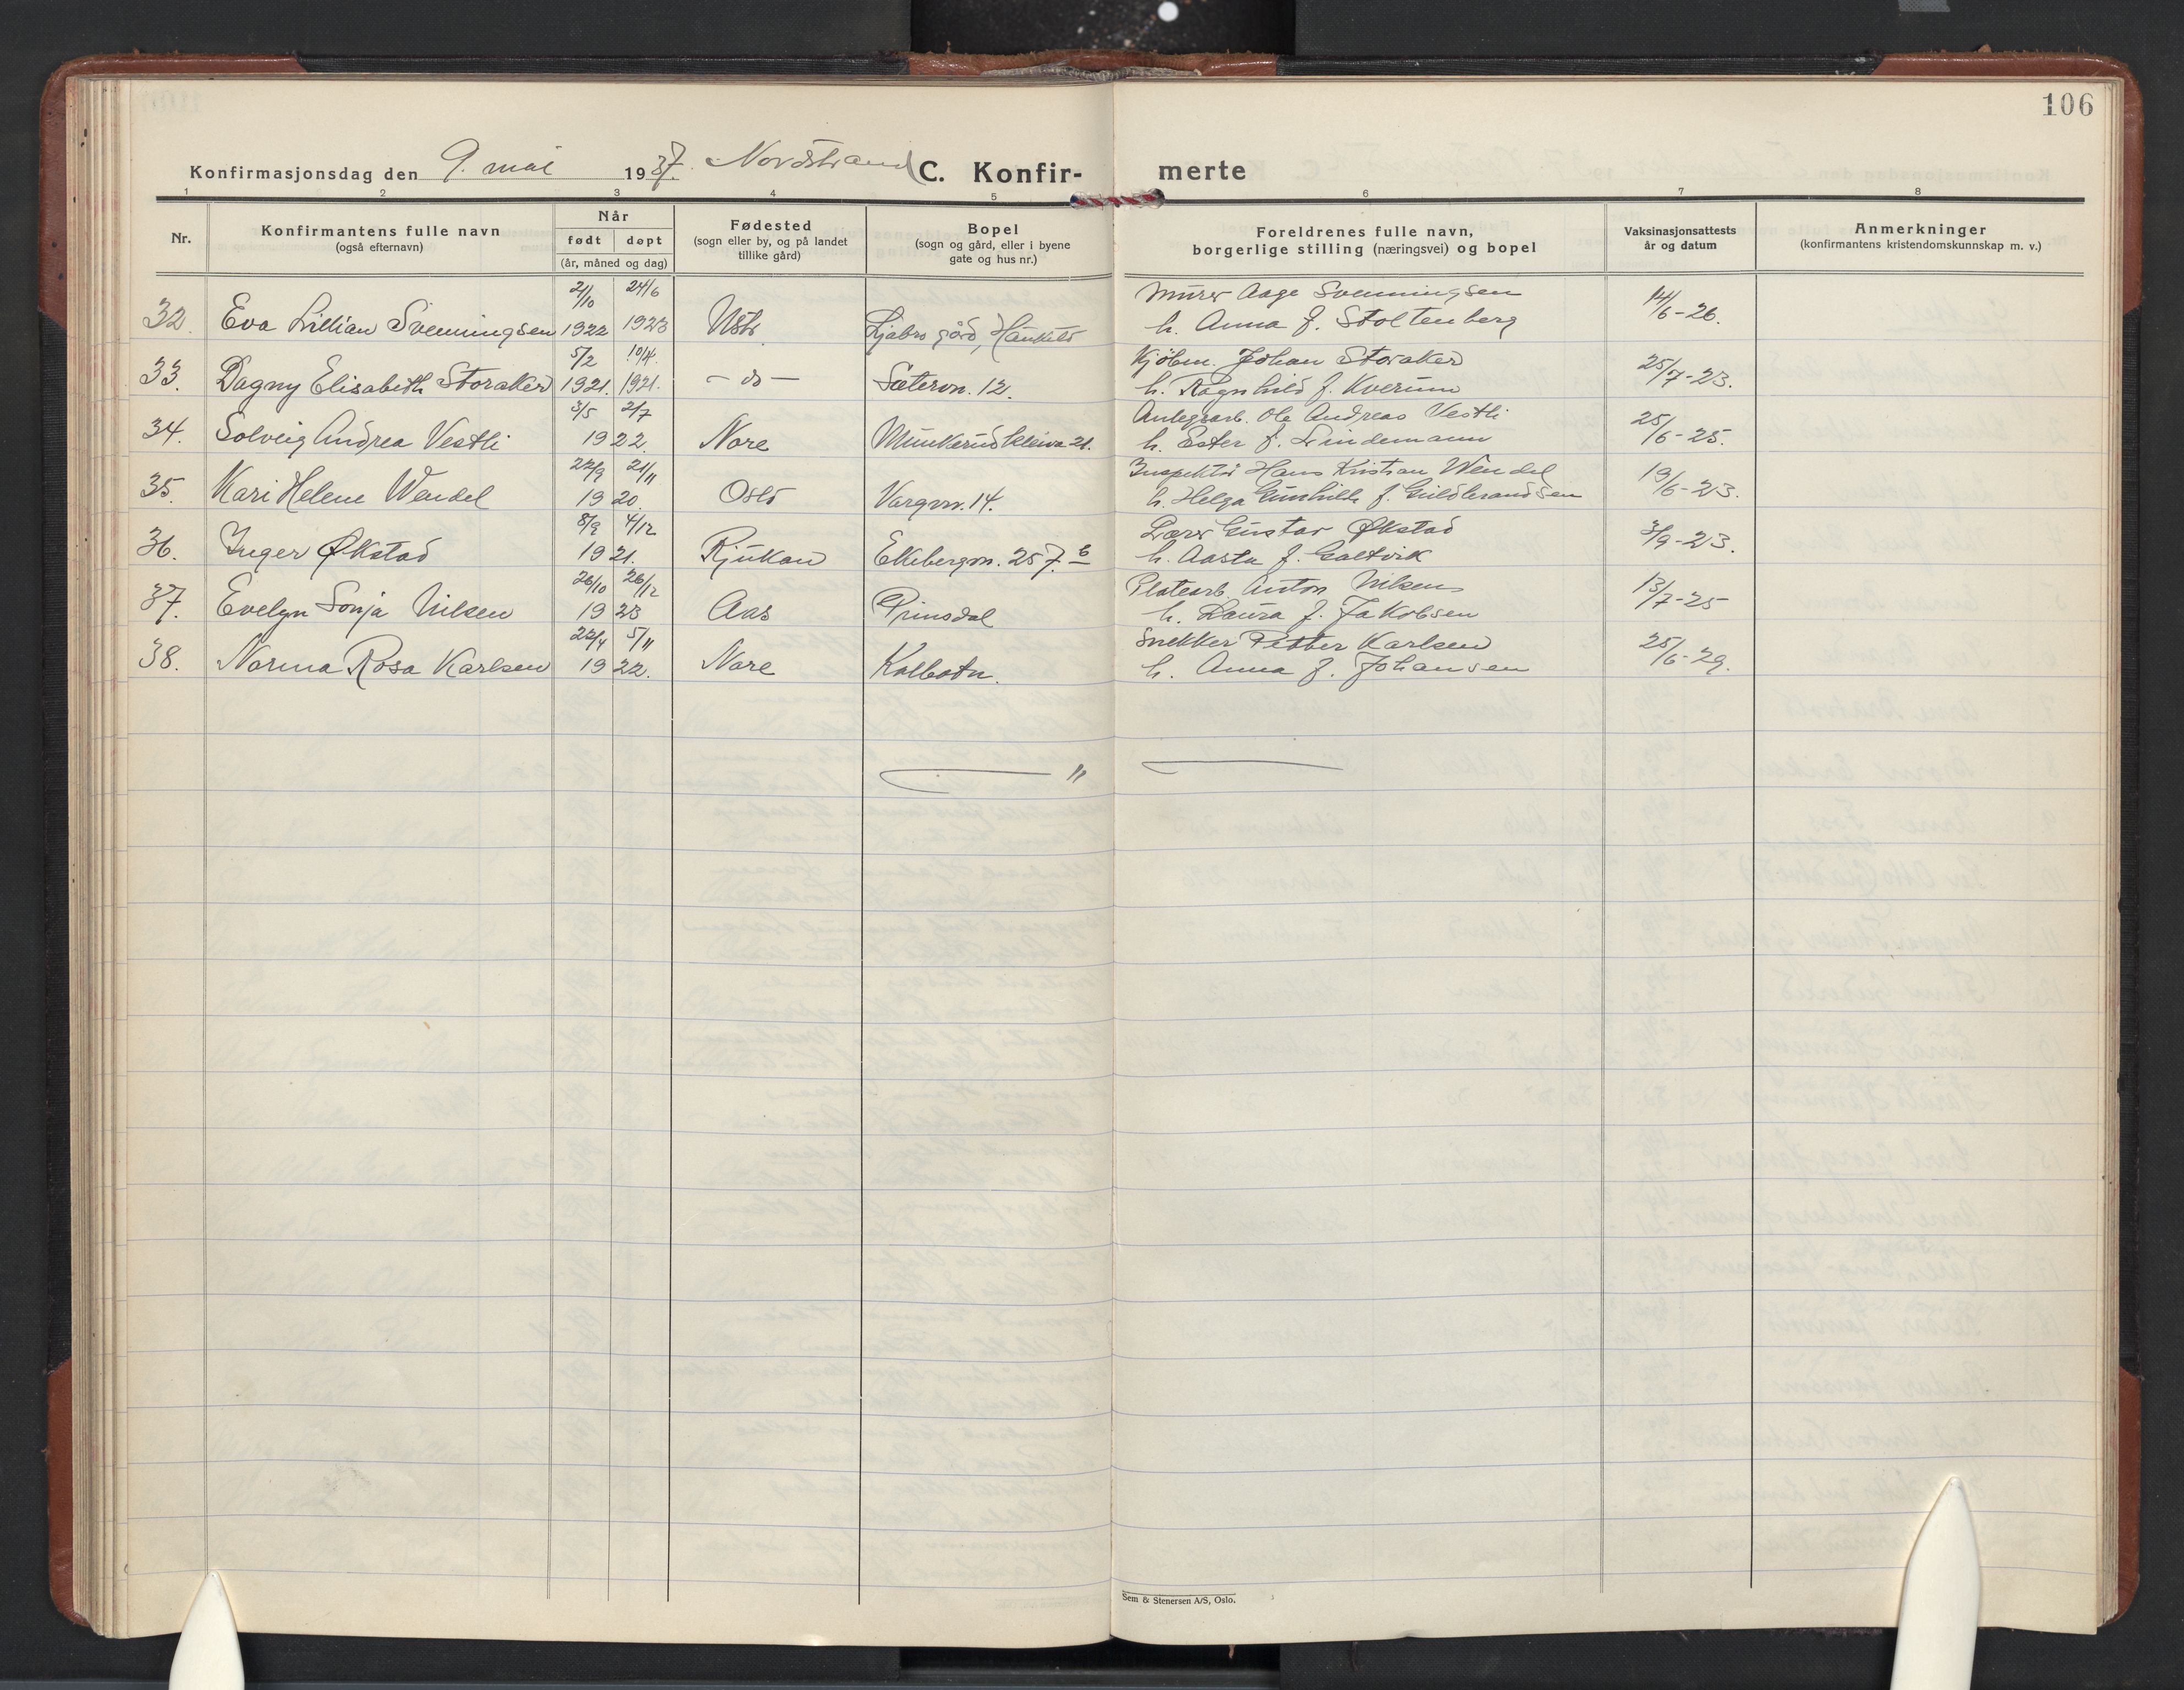 106
Konfirmasjonsdag den 9. mai 1937. Nordstrand C. Konfir- merte
1 2 3 4 5 6 7 8
Nr.
Konfirmantens fulle navn
(også efternavn)
Når
født døpt
(år, måned og dag)
Fødested
(sogn eller by, og på landet
tillike gård)
Bopel
(sogn og gård, eller i byene
gate og hus nr.)
Foreldrenes fulle navn,
borgerlige stilling (næringsvei) og bopel
Vaksinasjonsattests
år og datum
Anmerkninger
(konfirmantens kristendomskunnskap m. v.)
21/10 24/6 Murer Aage Svenningsen 14/6-26.
32. Eva Lillian Svenningsen 1922 1923 Nstr. Ljabro gård, Hauketo h. Anna f. Stoltenberg
5/2 10/4. Kjøbm. Johan Storaker 25/7-23.
33. Dagny Elisabeth Storaker 1921. 1921. - do - Sætervn. 12. h. Ragnhild f. Kverum
3/5 2/7 Anlegsarb. Ole Andreas Vestli 25/6-25.
34. Solveig Andrea Vestli 1922. Nore Munkerudkleiva 21. h. Ester f. Lindemann
22/9 21/11 Inspektør Hans Kristian Wendel 19/6-23.
35. Kari Helene Wendel 1920. Oslo Vargvn. 14. h. Helga Gunhilde f. Guldbrandsen
8/9 4/12 Lærer Gustav Økstad 3/9-23.
36. Inger Økstad 1921. Rjukan Ekebergvn. 257. h. Aasta f. Galtvik
26/10 26/12 Platearb. Anton Nilsen 13/7-25
37. Evelyn Sonja Nilsen 1923 Aas Prinsdal h. Laura f. Jakobsen
22/4 5/11 Snekker Petter Karlsen 25/6-29.
38. Norma Rosa Karlsen 1922. Nore Kolbotn. h. Anna f. Johansen
— " —
Sem & Stenersen A/S, Oslo.